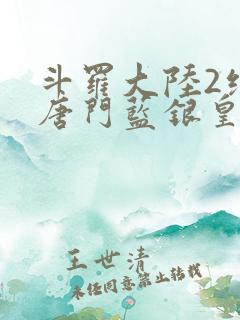 斗羅大陸2絕
唐門藍銀皇
王世清
未经同意禁止转载